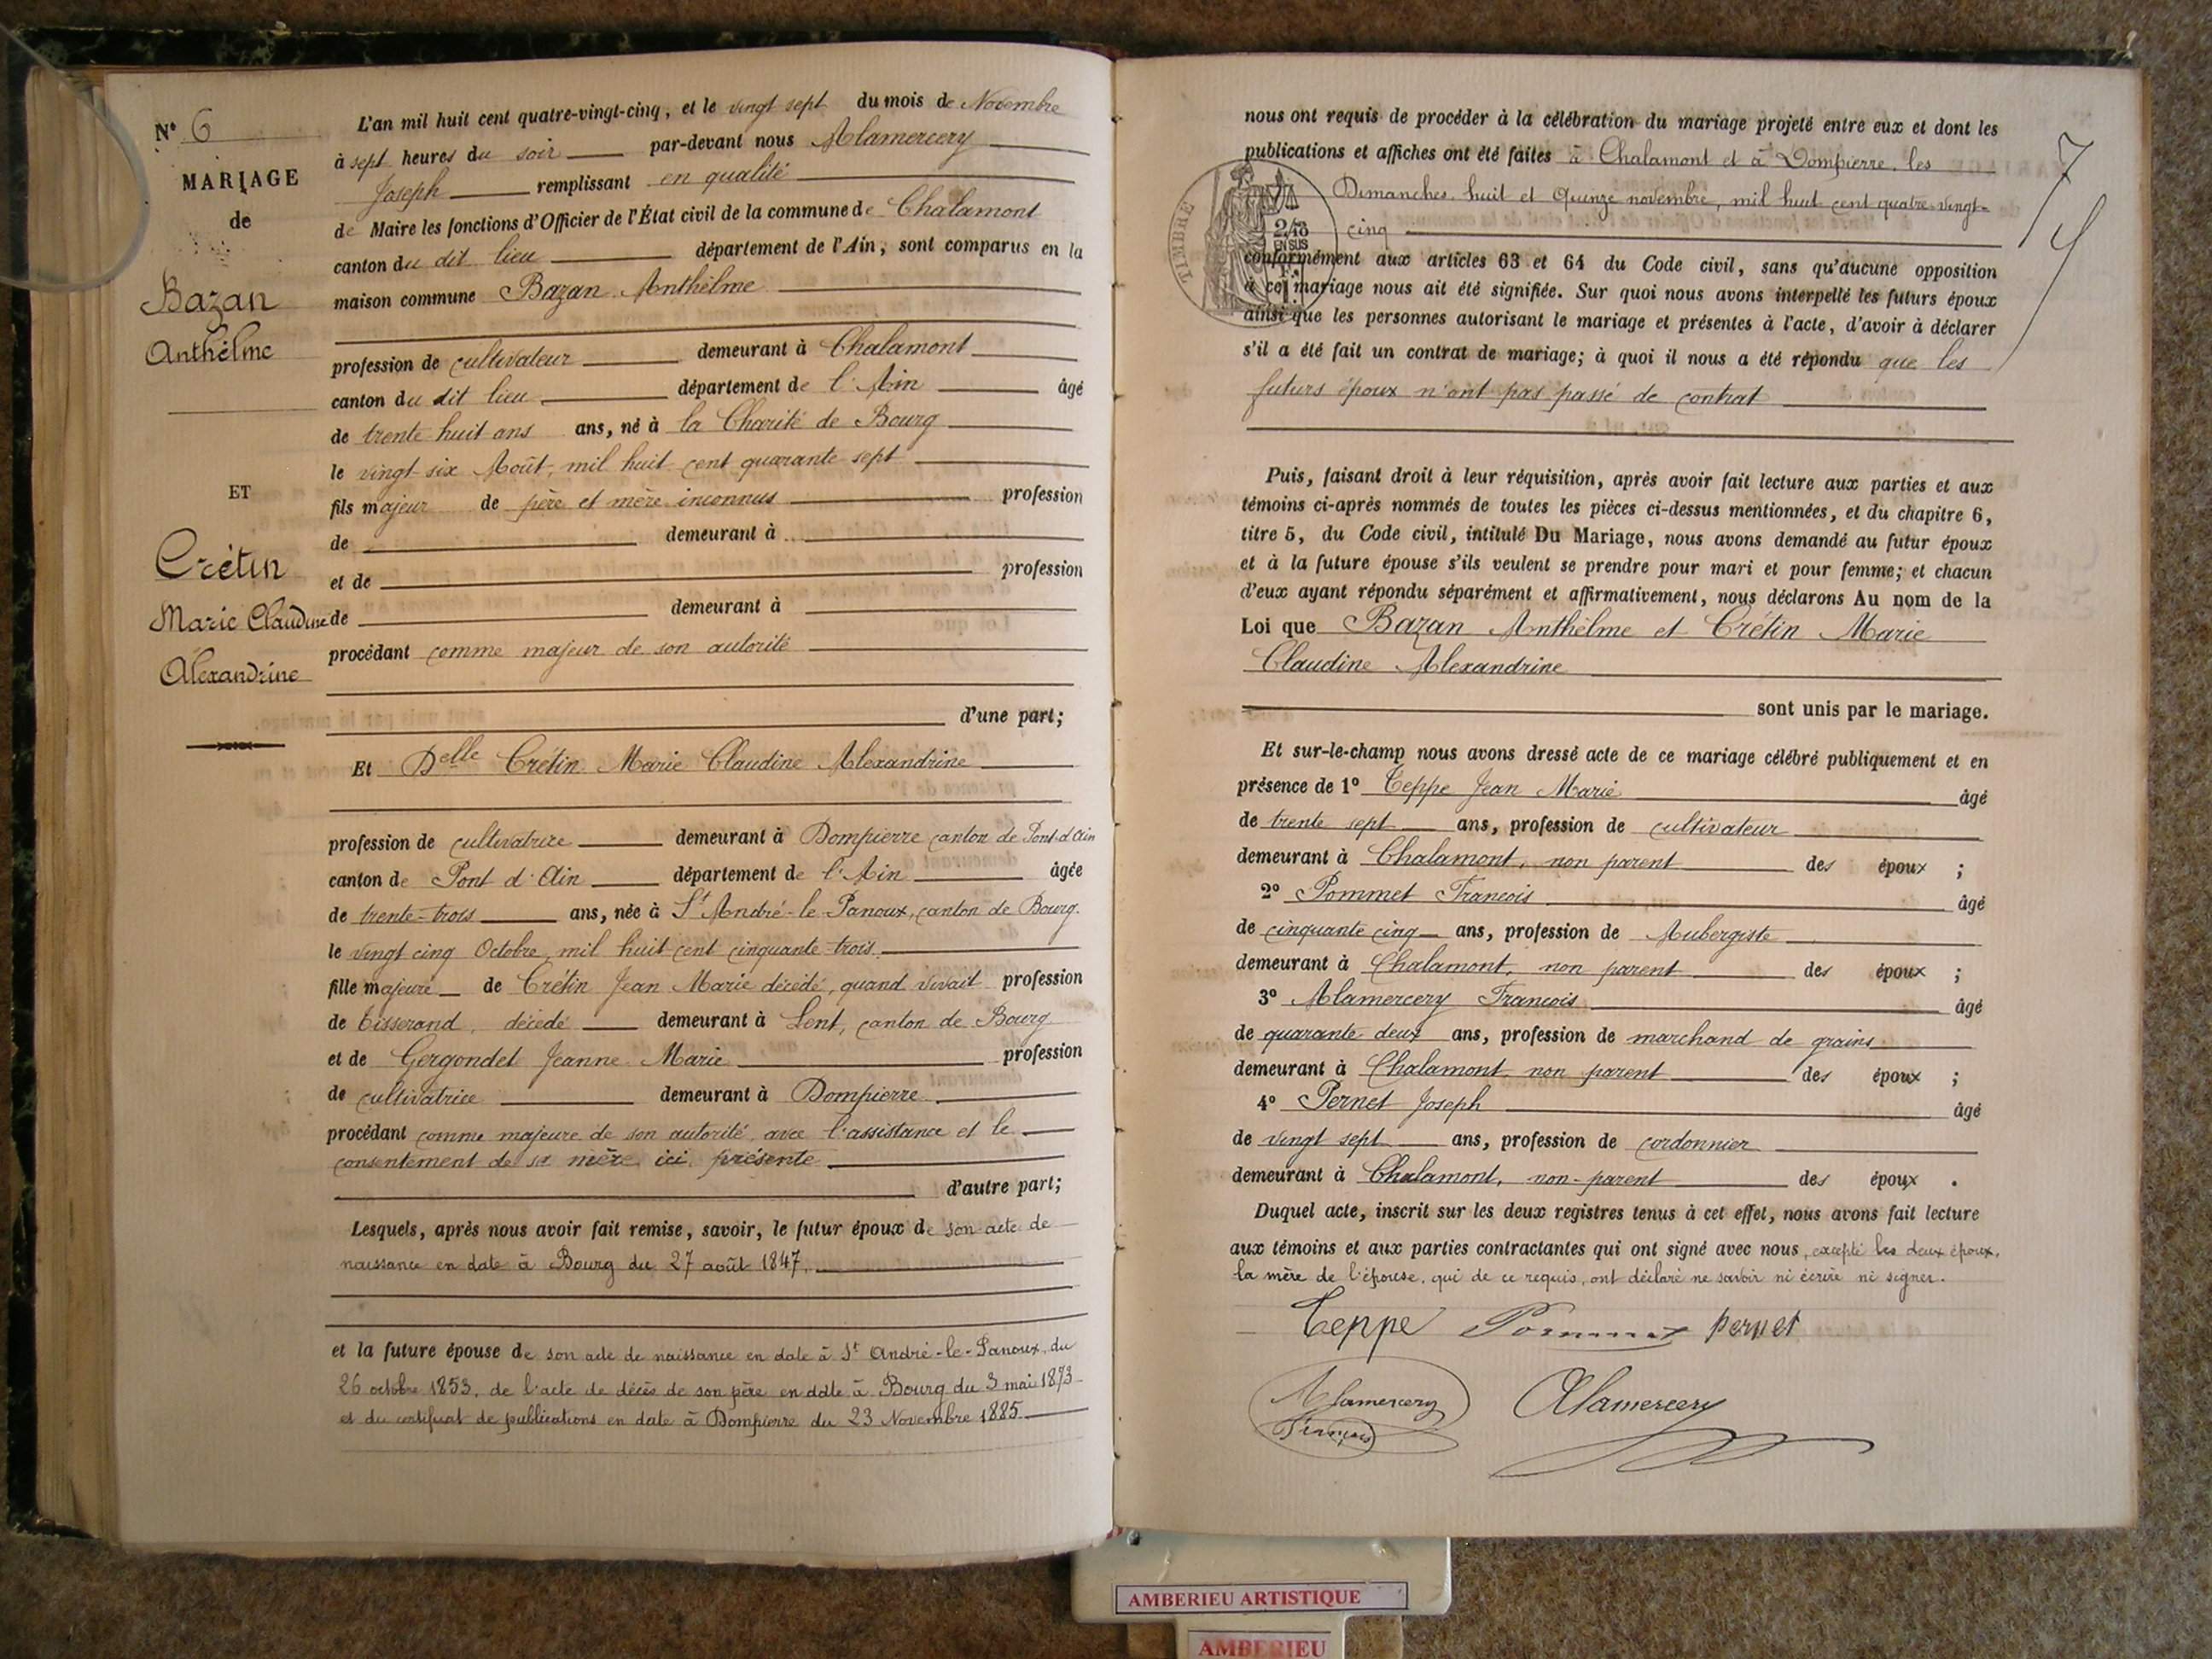 N° 6
MARIAGE
de
Bazan
Anthélme
ET
Crétin
Marie Claudine
Alexandrine
L'an mil huit cent quatre-vingt-cinq, et le vingt sept du mois de Novembre
à sept heures du soir par-devant nous Alamercery
Joseph remplissant en qualité
de Maire les fonctions d'Officier de l'État civil de la commune de Chalamont
canton du dit lieu département de l'Ain, sont comparus en la
maison commune Bazan Anthélme
profession de cultivateur demeurant à Chalamont
canton du dit lieu département de l'Ain âgé
de trente huit ans ans, né à la Charité de Bourg
le vingt-six Août, mil huit cent quarante sept
fils majeur de père et mère inconnus profession
de demeurant à
et de profession
de demeurant à
procédant comme majeur de son autorité
d'une part;
Et Delle Crétin Marie Claudine Alexandrine
profession de cultivatrice demeurant à Dompierre canton de Pont-d'Ain
canton de Pont d'Ain département de l'Ain âgée
de trente-trois ans, née à St André-le-Panoux, canton de Bourg.
le vingt cinq Octobre mil huit cent cinquante-trois
fille majeure de Crétin Jean Marie décédé, quand vivait profession
de tisserand, décédé demeurant à Lent, canton de Bourg
et de Gergondet Jeanne Marie profession
de cultivatrice demeurant à Dompierre
procédant comme majeure de son autorité avec l'assistance et le
consentement de sa mère ici présente
d'autre part;
Lesquels, après nous avoir fait remise, savoir, le futur époux de son acte de
naissance en date à Bourg du 27 août 1847.
et la future épouse de son acte de naissance en date à St André-le-Panoux, du
26 octobre 1853, de l'acte de décès de son père en date à Bourg du 3 mai 1873
et du certificat de publications en date à Dompierre du 23 Novembre 1885
nous ont requis de procéder à la célébration du mariage projeté entre eux et dont les
publications et affiches ont été faites à Chalamont et à Dompierre, les
Dimanches huit et Quinze novembre, mil huit cent quatre-vingt-
cinq
TIMBRE
2/10
EN SUS
conformément aux articles 63 et 64 du Code civil, sans qu'aucune opposition
à ce mariage nous ait été signifiée. Sur quoi nous avons interpellé les futurs époux
ainsi que les personnes autorisant le mariage et présentes à l'acte, d'avoir à déclarer
s'il a été fait un contrat de mariage; à quoi il nous a été répondu que les
futurs époux n'ont pas passé de contrat
Puis, faisant droit à leur réquisition, après avoir fait lecture aux parties et aux
témoins ci-après nommés de toutes les pièces ci-dessus mentionnées, et du chapitre 6,
titre 5, du Code civil, intitulé Du Mariage, nous avons demandé au futur époux
et à la future épouse s'ils veulent se prendre pour mari et pour femme; et chacun
d'eux ayant répondu séparément et affirmativement, nous déclarons Au nom de la
Loi que Bazan Anthélme et Crétin Marie
Claudine Alexandrine
sont unis par le mariage.
Et sur-le-champ nous avons dressé acte de ce mariage célébré publiquement et en
présence de 1° Teppe Jean Marie âgé
de trente sept ans, profession de cultivateur
demeurant à Chalamont, non parent des époux ;
2° Pommet François âgé
de cinquante cinq ans, profession de Aubergiste
demeurant à Chalamont, non parent des époux ;
3° Alamercery François âgé
de quarante-deux ans, profession de marchand de grains
demeurant à Chalamont non parent des époux ;
4° Pernet Joseph âgé
de vingt sept ans, profession de cordonnier
demeurant à Chalamont, non-parent des époux .
Duquel acte, inscrit sur les deux registres tenus à cet effet, nous avons fait lecture
aux témoins et aux parties contractantes qui ont signé avec nous, excepté les deux époux,
la mère de l'épouse, qui de ce requis, ont déclaré ne savoir ni écrire ni signer.
Teppe Pommet pernet
Alamercery
François
Alamercery
AMBERIEU ARTISTIQUE
AMBERIEU